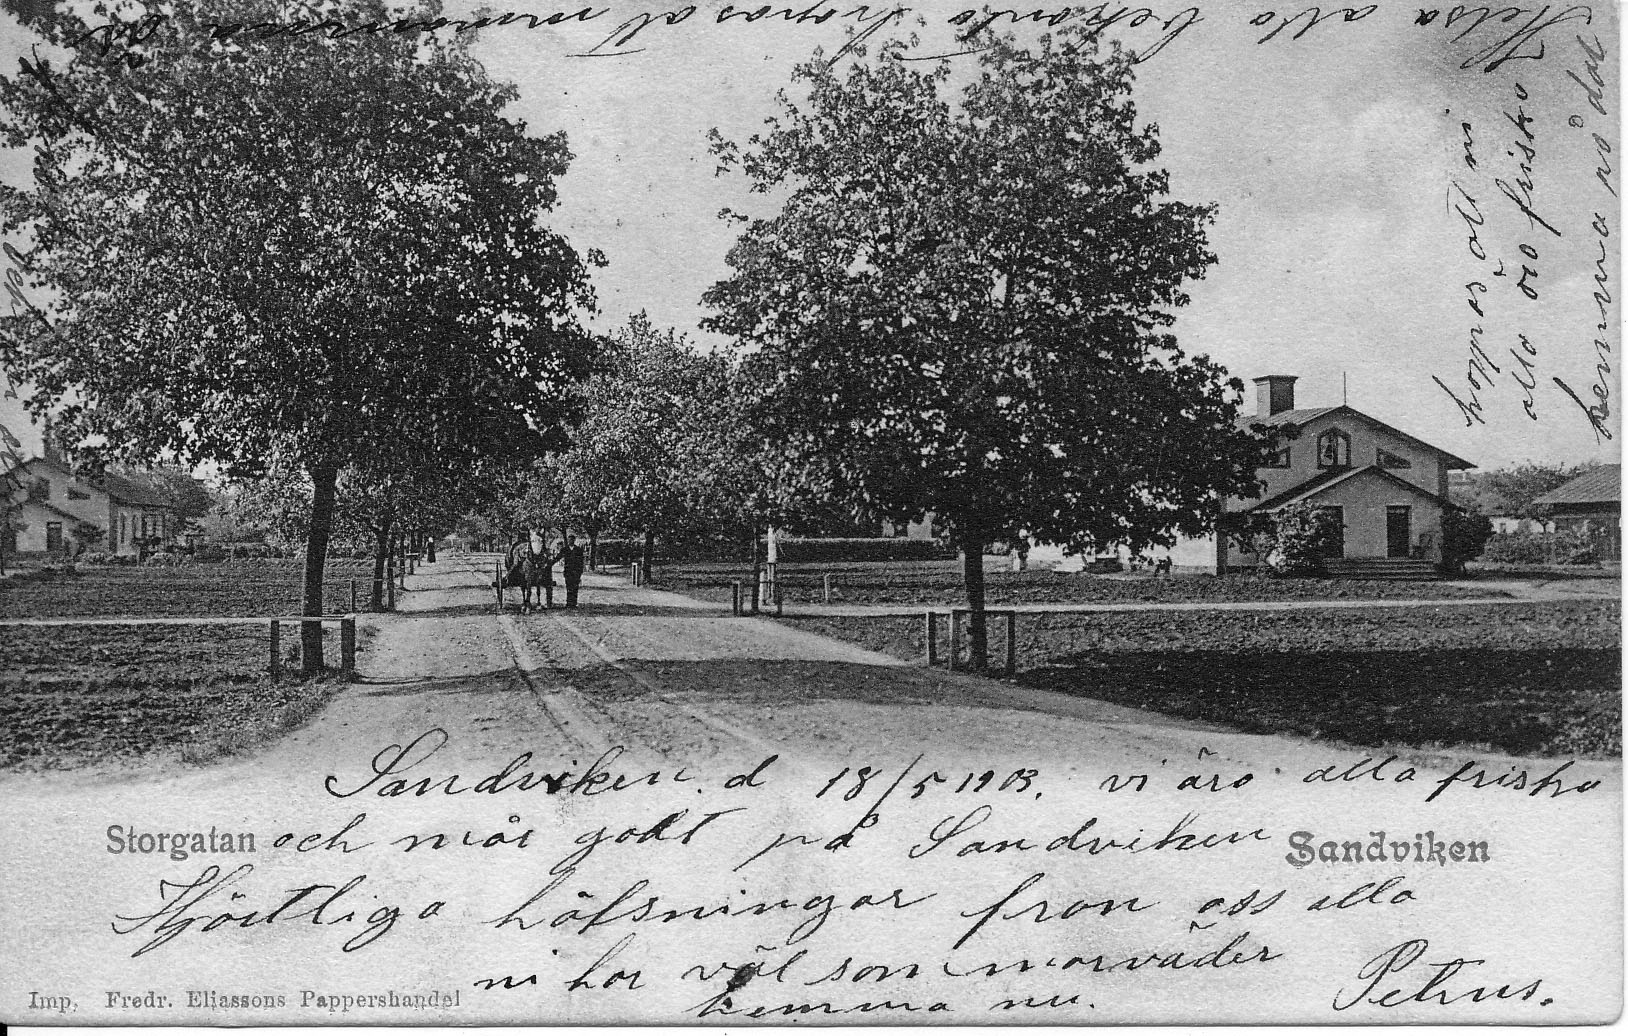 Sandviken. d 18/5 1903. vi äro alla friska
Storgatan
och mår godt på Sandviken
Sandviken
Hjärtliga hälsningar från oss alla
ni har väl sommarväder
hemma nu.
Petrus.
Imp. Fredr. Eliassons Pappershandel
hoppas att ni
alla äro friska
hemma på
Helsa alla bekanta hopas at